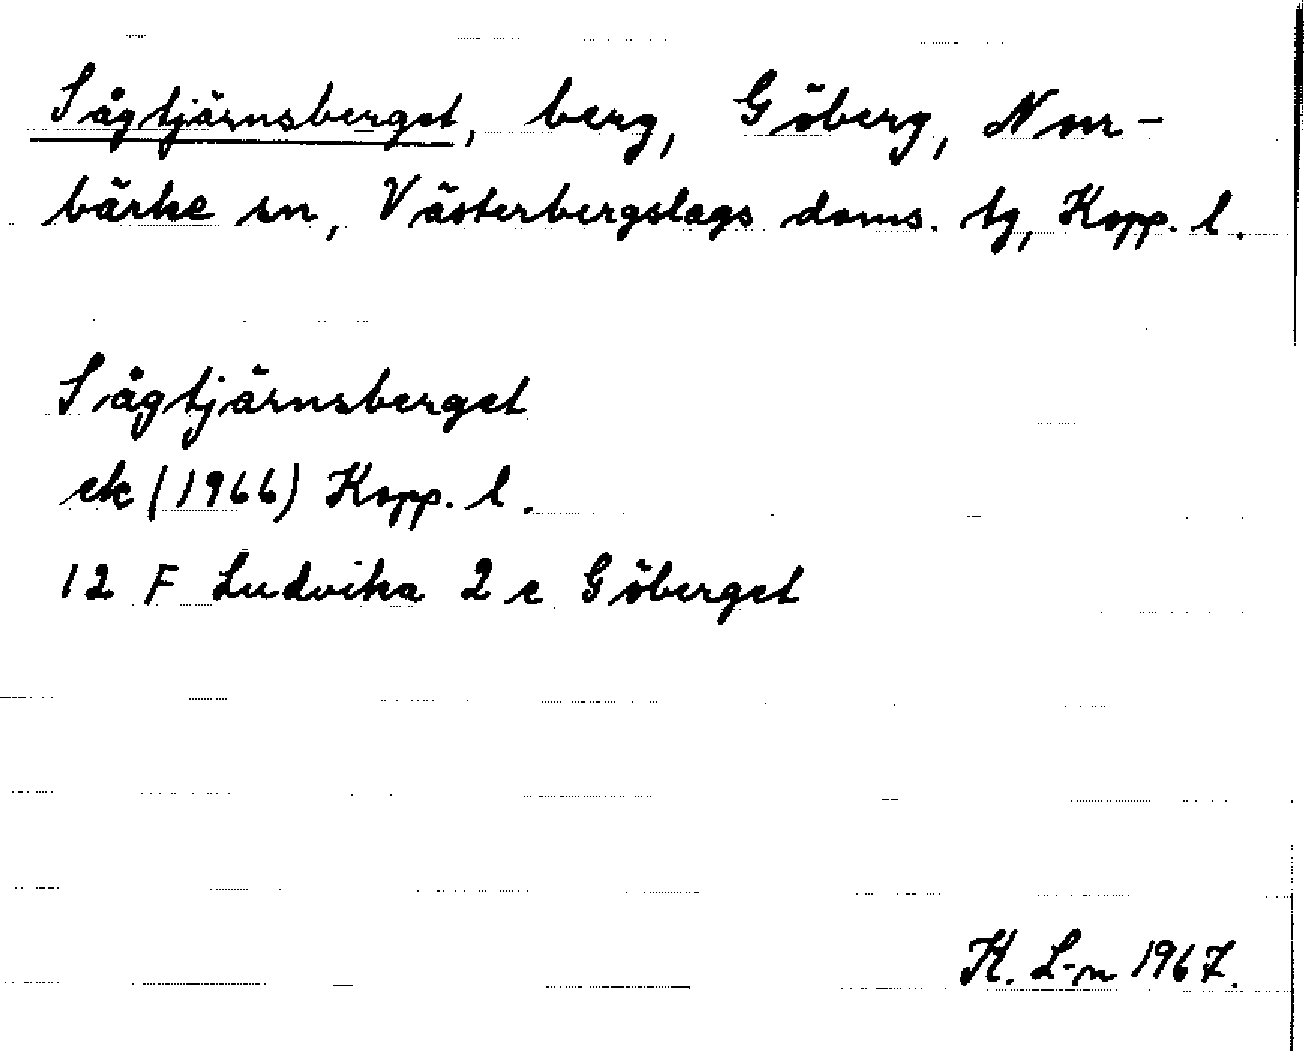 Sågtjärnsberget, berg, Göberg, Nor-
bärke sn, Västerbergslags doms. tg, Kopp. l.
Sågtjärnsberget
ek (1966) Kopp. l.
12 F Ludvika 2 c Göberget
K. L-n 1967.